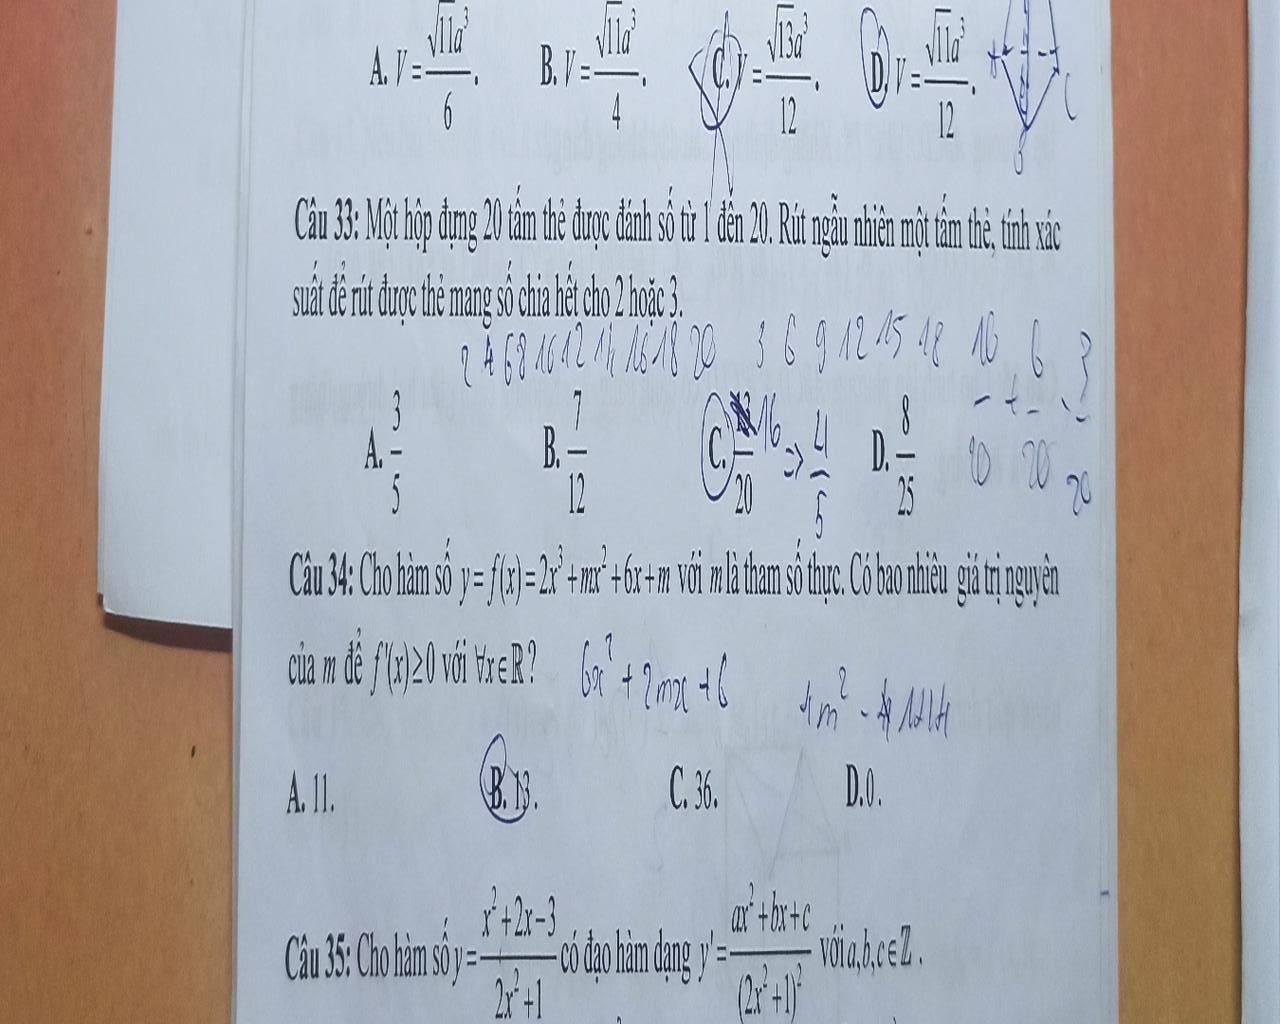 A. V = √11a³/6.  B. V = √11a³/4.  C. V = √13a³/12.  D. V = √11a³/12.
C
Câu 33: Một hộp đựng 20 tấm thẻ được đánh số từ 1 đến 20. Rút ngẫu nhiên một tấm thẻ, tính xác
suất để rút được thẻ mang số chia hết cho 2 hoặc 3.
2 4 6 8 10 12 14 16 18 20  3 6 9 12 15 18  10/20 + 6/20 - 3/20
A. 3/5  B. 7/12  C. 16/20 => 4/5  D. 8/25
Câu 34: Cho hàm số y = f(x) = 2x³ + mx² + 6x + m với m là tham số thực. Có bao nhiêu giá trị nguyên
của m để f'(x) ≥ 0 với ∀x∈ℝ?
6x² + 2mx + 6
4m² - 144
A. 11.  B. 13.  C. 36.  D. 0.
Câu 35: Cho hàm số y = (x² + 2x − 3)/(2x² + 1) có đạo hàm dạng y' = (ax² + bx + c)/(2x² + 1)² với a, b, c ∈ ℤ.